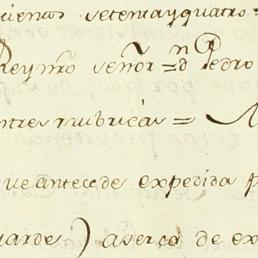 cientos setenta y quatro =
Rey nrõ señor = Dn Pedro
entres rubricas =
que antecede expedida p
uarde) aserca de ex